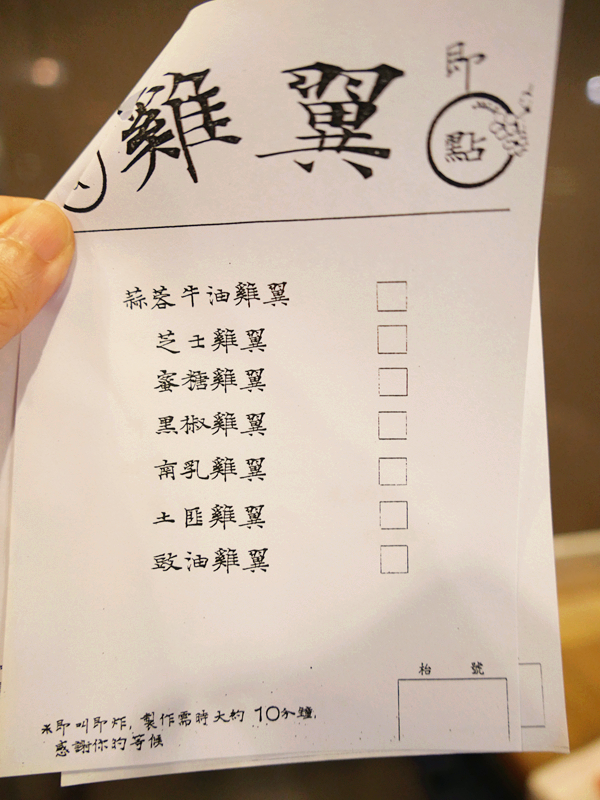 雞翼
即
點
蒜蓉牛油雞翼
芝士雞翼
蜜糖雞翼
黑椒雞翼
南乳雞翼
土匪雞翼
豉油雞翼
枱 號
※即叫即炸, 製作需時大約 10分鐘,
感謝你的等候